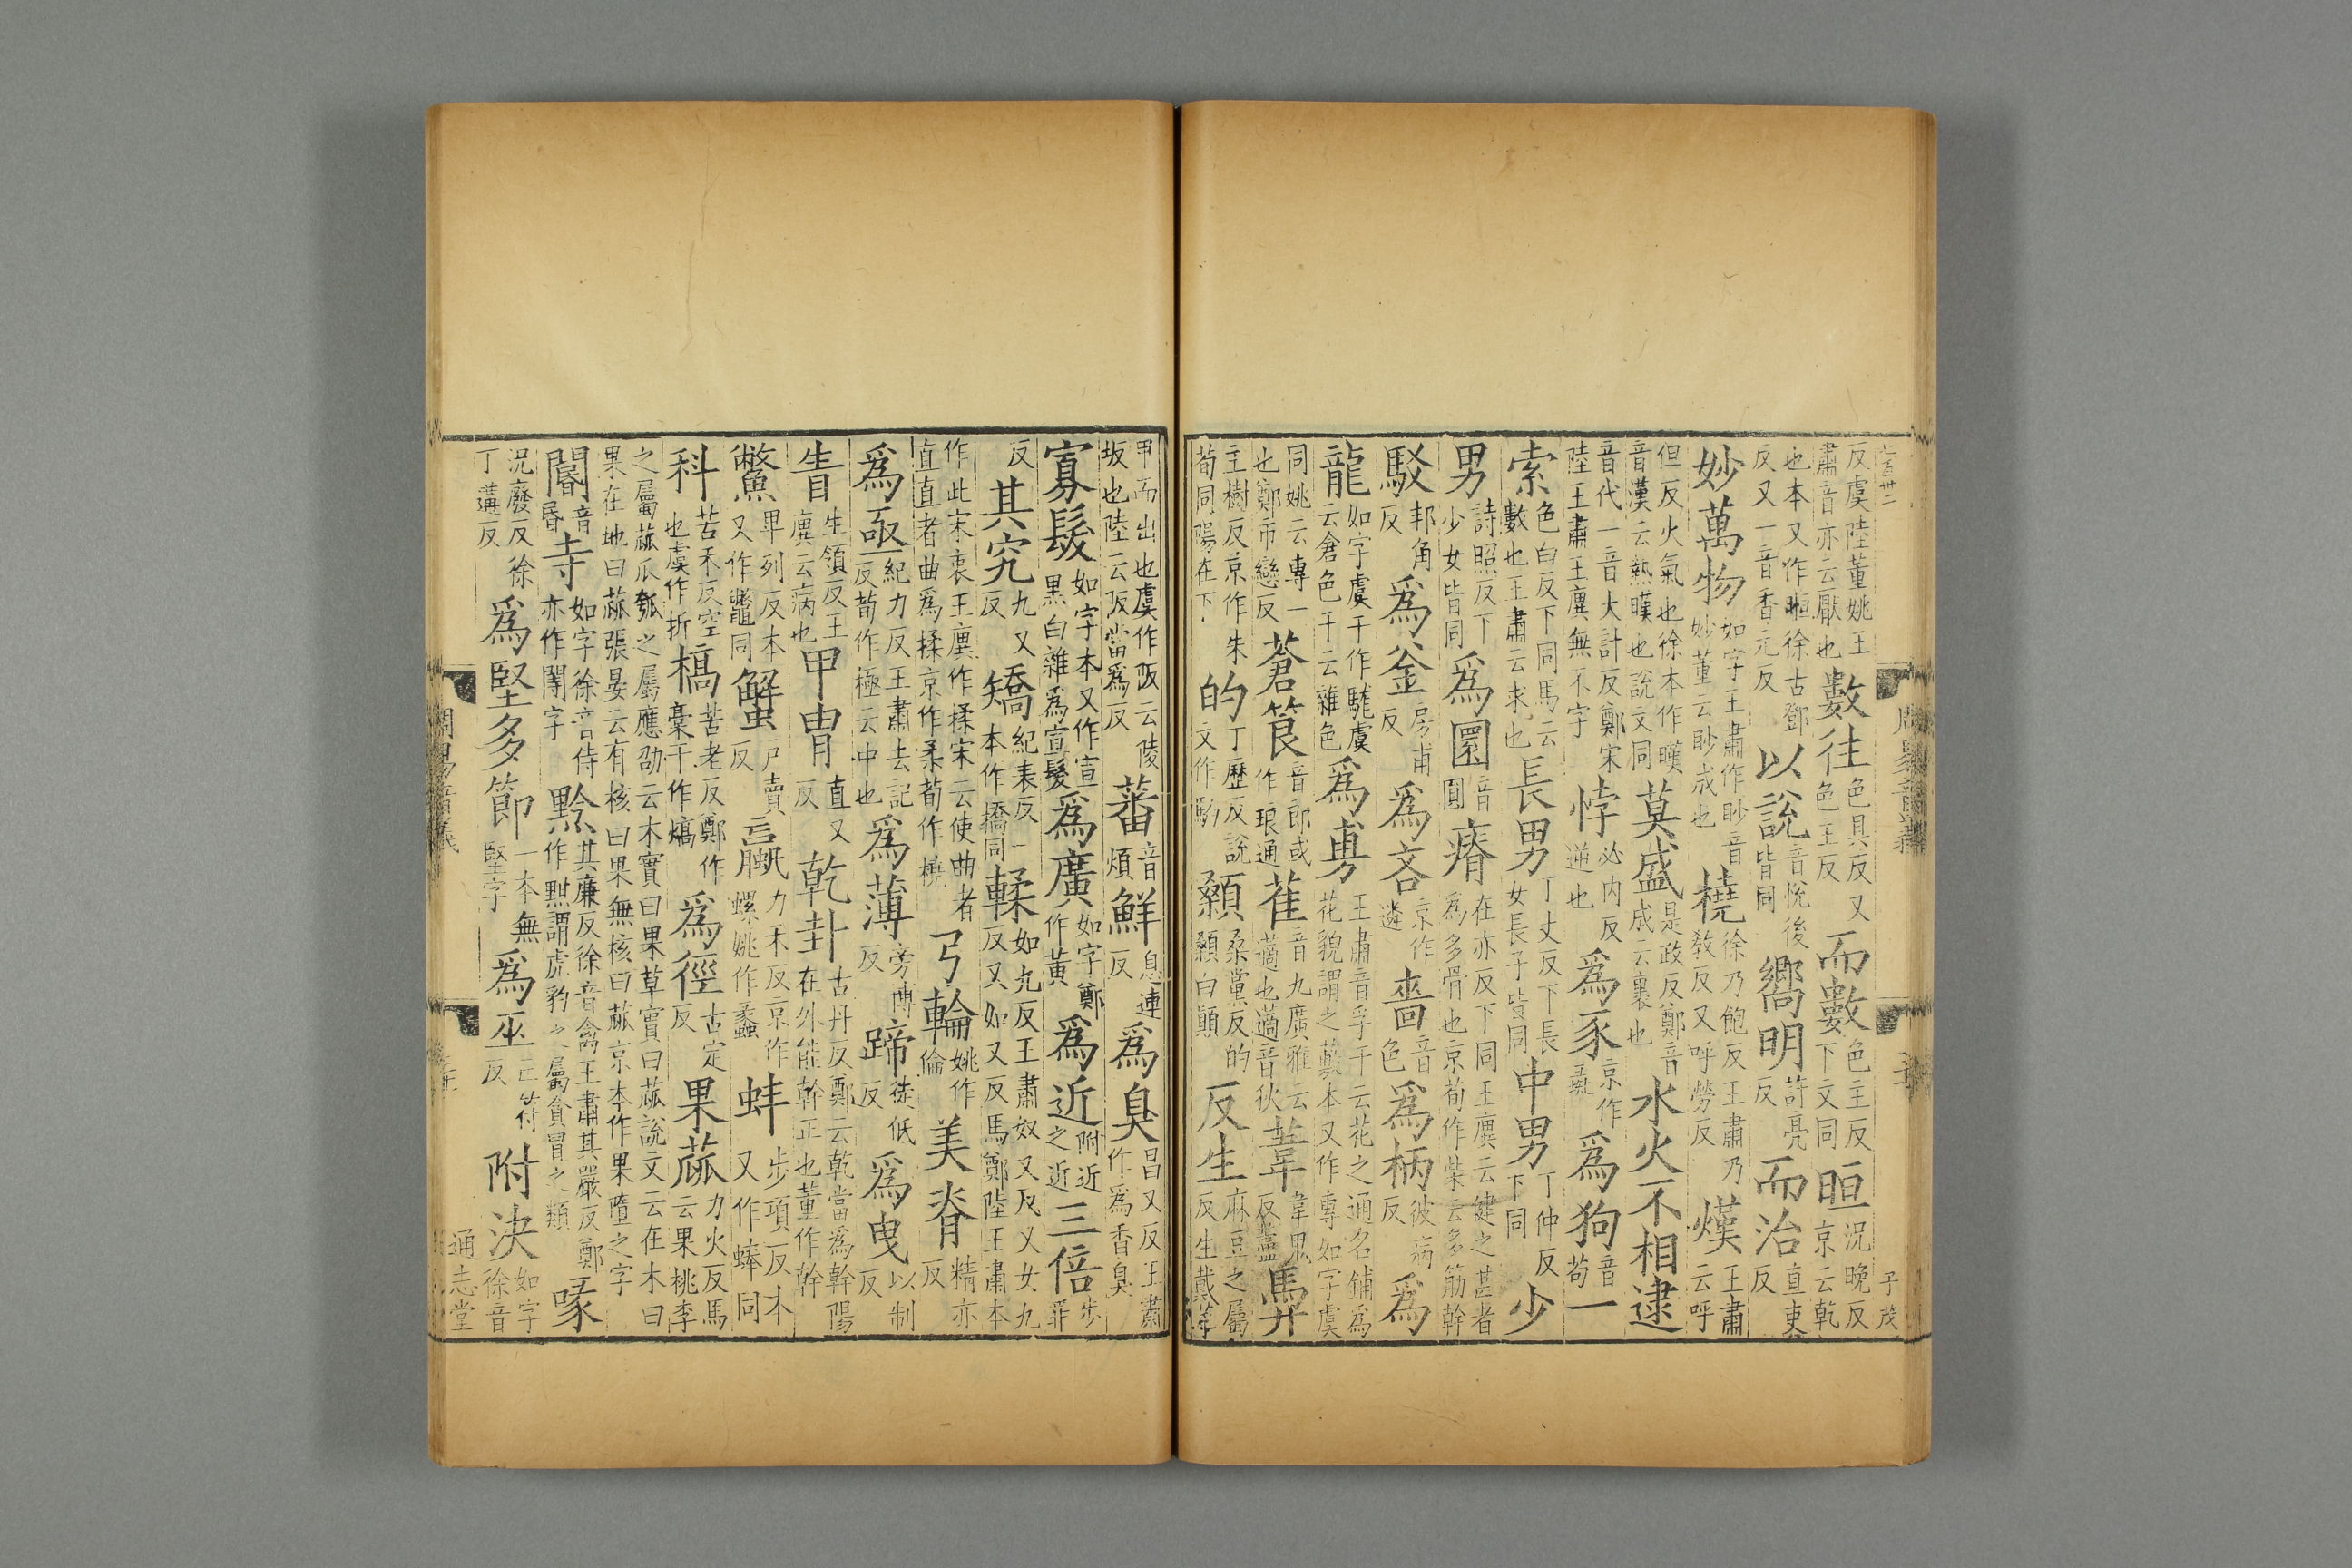 七百廿二
周易音義
子茂
反虞陸董姚王肅音亦云厭也數往色具反又色主反而數色主反下文同晅況晚反京云乾
也本又作暅徐古鄧反又一音香元反以說音悅後皆同嚮明許亮反而治直吏反
妙萬物如字王肅作眇音妙董云眇成也橈徐乃飽反王肅乃教反又呼勞反熯王肅云呼
但反火氣也徐本作暵音漢云熱暵也說文同莫盛是政反鄭音成云裹也水火不相逮
音代一音大計反鄭宋陸王肅王廙無不字悖必内反逆也爲豕京作彘爲狗音苟一
索色白反下同馬云數也王肅云求也長男丁丈反下長女長子皆同中男丁仲反下同少
男詩照反下少女皆同爲圜音圓瘠在亦反下同王廙云健之甚者爲多骨也京荀作柴云多筋幹
駁邦角反爲釜房甫反爲吝京作遴嗇音色爲柄彼病反爲
龍如字虞干作駹虞云倉色干云雜色爲旉王肅音孚干云花之通名鋪爲花貌謂之藪本又作專如字虞
同姚云專一也鄭市戀反蒼筤音郎或作琅通萑音九廣雅云藡也藡音狄葦韋鬼反蘆馵
主樹反京作朱荀同陽在下的丁歷反說文作馰顙桑黨反的顙白顛反生麻豆之屬反生戴莩
甲而出也虞作阪云陵坂也陸云阪當爲反蕃音煩鮮息連反爲臭昌又反王肅作爲香臭
寡髮如字本又作宣黑白雜爲宣髮爲廣如字鄭作黃爲近附近之近三倍步罪
反其究九又反矯紀表反一本作撟同輮如九反王肅奴又反又女九反又如又反馬鄭陸王肅本
作此宋衷王廙作揉宋云使曲者直直者曲爲揉京作柔荀作橈弓輪姚作倫美脊精亦反
爲亟紀力反王肅去記反荀作極云中也爲薄旁博反蹄徒低反爲曳以制反
眚生領反王廙云病也甲冑直又反乾卦古丹反鄭云乾當爲幹陽在外能幹正也董作幹
鱉卑列反本又作鼈同蟹戶賣反蠃力禾反京作螺姚作蠡蚌步項反本又作蜯同
科苦禾反空也虞作折槁苦老反鄭作稾干作熇爲徑古定反果蓏力火反馬云果桃李
之屬蓏瓜瓠之屬應劭云木實曰果草實曰蓏說文云在木曰果在地曰蓏張晏云有核曰果無核曰蓏京本作果墮之字
閽音昏寺如字徐音侍亦作閽字黔其廉反徐音禽王肅其嚴反鄭作黚謂虎豹之屬貪冒之類喙
況廢反徐丁遘反爲堅多節一本無堅字爲巫亡符反附決如字徐音
周易音義
通志堂